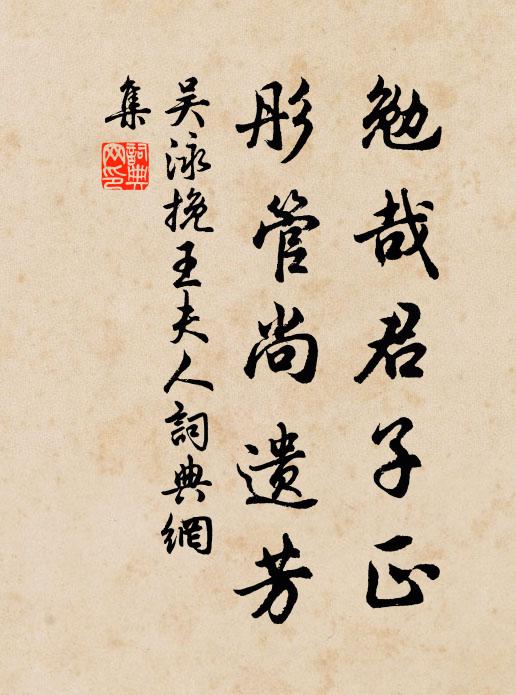 勉哉君子正
彤管尚遗芳
吴泳挽王夫人詞典網
集
詞典網印